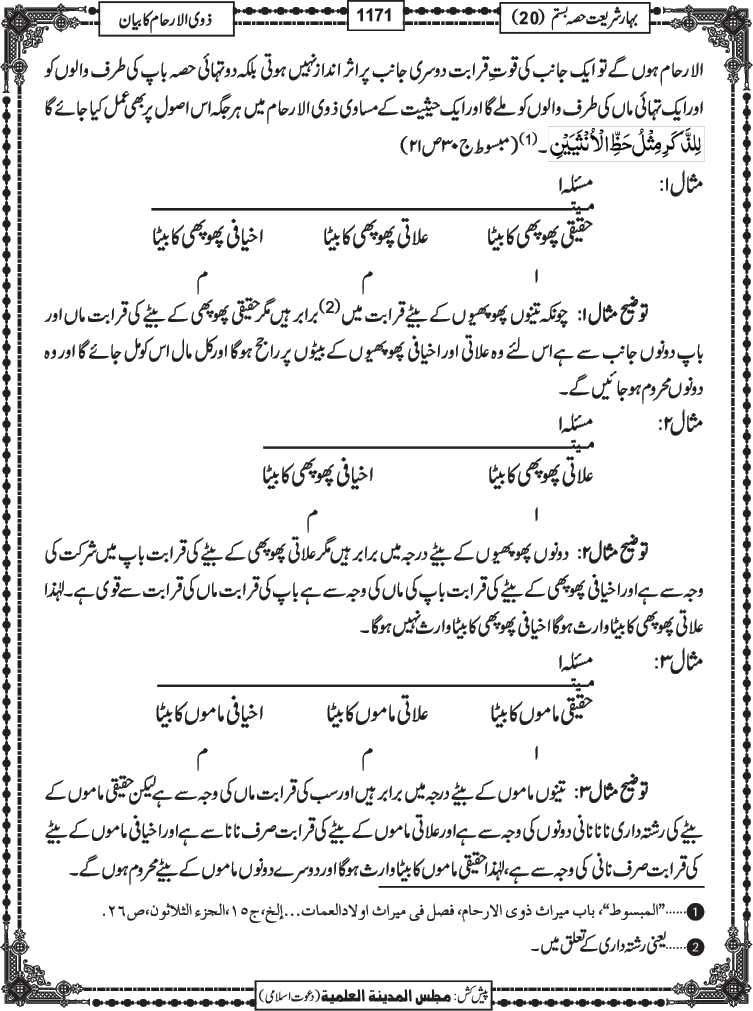 بہار شریعت حصہ بستم (20)
1171
ذوی الارحام کا بیان
الارحام ہوں گے تو ایک جانب کی قوتِ قرابت دوسری جانب پر اثر انداز نہیں ہوتی بلکہ دو تہائی حصہ باپ کی طرف والوں کو
اور ایک تہائی ماں کی طرف والوں کو ملے گا اور ایک حیثیت کے مساوی ذوی الارحام میں ہر جگہ اس اصول پر بھی عمل کیا جائے گا
لِلذَّكَرِ مِثْلُ حَظِّ الْاُنْثَیَیْنِ ۔(1) (مبسوط ج ۳۰ ص ۲۱)
مثال ۱: مسئلہ ا
میـــت
حقیقی پھوپھی کا بیٹا علاتی پھوپھی کا بیٹا اخیافی پھوپھی کا بیٹا
ا م م
توضیح مثال ۱: چونکہ تینوں پھوپھیوں کے بیٹے قرابت میں(2) برابر ہیں مگر حقیقی پھوپھی کے بیٹے کی قرابت ماں اور
باپ دونوں جانب سے ہے اس لئے وہ علاتی اور اخیافی پھوپھیوں کے بیٹوں پر راجح ہوگا اور کل مال اس کو مل جائے گا اور وہ
دونوں محروم ہو جائیں گے۔
مثال ۲: مسئلہ ا
میـــت
علاتی پھوپھی کا بیٹا اخیافی پھوپھی کا بیٹا
ا م
توضیح مثال ۲: دونوں پھوپھیوں کے بیٹے درجہ میں برابر ہیں مگر علاتی پھوپھی کے بیٹے کی قرابت باپ میں شرکت کی
وجہ سے ہے اور اخیافی پھوپھی کے بیٹے کی قرابت باپ کی ماں کی وجہ سے ہے باپ کی قرابت ماں کی قرابت سے قوی ہے۔ لہٰذا
علاتی پھوپھی کا بیٹا وارث ہوگا اخیافی پھوپھی کا بیٹا وارث نہیں ہوگا۔
مثال ۳: مسئلہ ا
میـــت
حقیقی ماموں کا بیٹا علاتی ماموں کا بیٹا اخیافی ماموں کا بیٹا
ا م م
توضیح مثال ۳: تینوں ماموں کے بیٹے درجہ میں برابر ہیں اور سب کی قرابت ماں کی وجہ سے ہے لیکن حقیقی ماموں کے
بیٹے کی رشتہ داری نانا نانی دونوں کی وجہ سے ہے اور علاتی ماموں کے بیٹے کی قرابت صرف نانا سے ہے اور اخیافی ماموں کے بیٹے
کی قرابت صرف نانی کی وجہ سے ہے، لہٰذا حقیقی ماموں کا بیٹا وارث ہوگا اور دوسرے دونوں ماموں کے بیٹے محروم ہوں گے۔
1......"المبسوط"، باب میراث ذوی الارحام، فصل فی میراث اولاد العمات...إلخ، ج۱۵، الجزء الثلاثون، ص۲۶.
2......یعنی رشتہ داری کے تعلق میں۔
پیش کش: مجلس المدینۃ العلمیۃ (دعوت اسلامی)